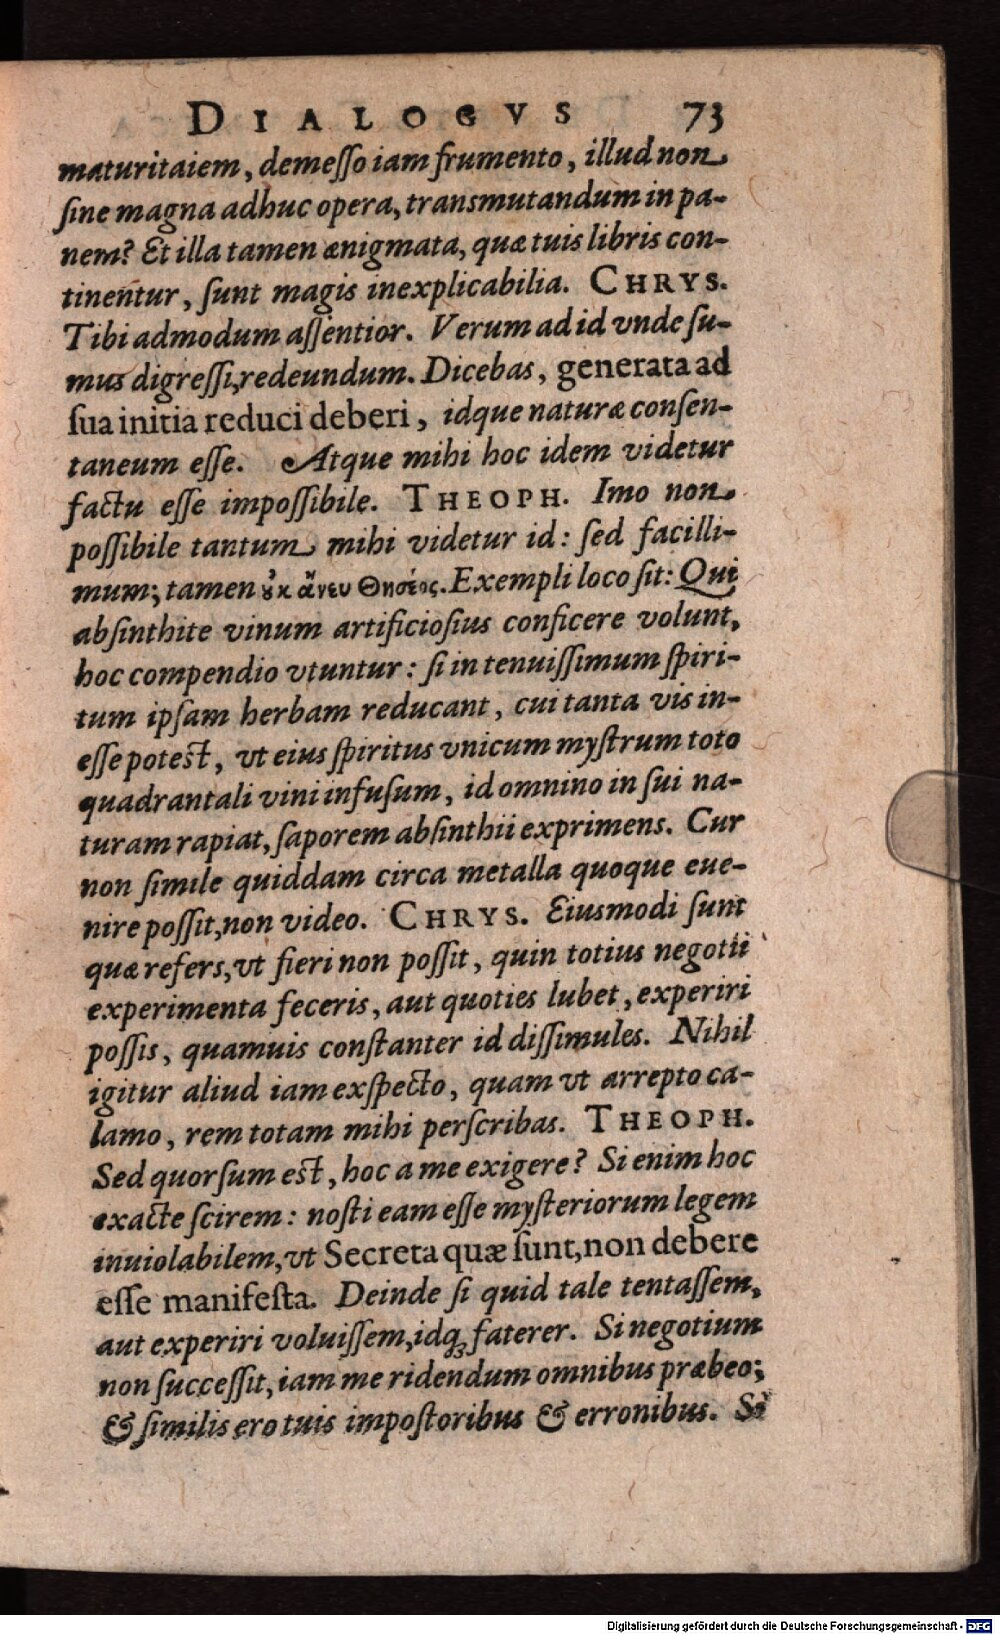 DIALOGVS 73
maturitaiem, demesso iam frumento, illud non
sine magna adhuc opera, transmutandum in pa-
nem? Et illa tamen ænigmata, quæ tuis libris con-
tinentur, sunt magis inexplicabilia. CHRYS.
Tibi admodum assentior. Verum ad id vnde su-
mus digressi, redeundum. Dicebas, generata ad
sua initia reduci deberi, idque naturæ consen-
taneum esse. Atque mihi hoc idem videtur
factu esse impossibile. THEOPH. Imo non
possibile tantum mihi videtur id: sed facilli-
mum; tamen ȣ̓κ ἄνευ Θησέος. Exempli loco sit: Qui
absinthite vinum artificiosius conficere volunt,
hoc compendio vtuntur: si in tenuissimum spiri-
tum ipsam herbam reducant, cui tanta vis in-
esse potest, vt eius spiritus vnicum mystrum toto
quadrantali vini infusum, id omnino in sui na-
turam rapiat, saporem absinthii exprimens. Cur
non simile quiddam circa metalla quoque eue-
nire possit, non video. CHRYS. Eiusmodi sunt
quæ refers, vt fieri non possit, quin totius negotii
experimenta feceris, aut quoties lubet, experiri
possis, quamuis constanter id dissimules. Nihil
igitur aliud iam exspecto, quam vt arrepto ca-
lamo, rem totam mihi perscribas. THEOPH.
Sed quorsum est, hoc a me exigere? Si enim hoc
exacte scirem: nosti eam esse mysteriorum legem
inuiolabilem, vt Secreta quæ sunt, non debere
esse manifesta. Deinde si quid tale tentassem,
aut experiri voluissem, idq́ꝫ faterer. Si negotium
non successit, iam me ridendum omnibus præbeo;
& similis ero tuis impostoribus & erronibus. Si
Digitalisierung gefördert durch die Deutsche Forschungsgemeinschaft - DFG